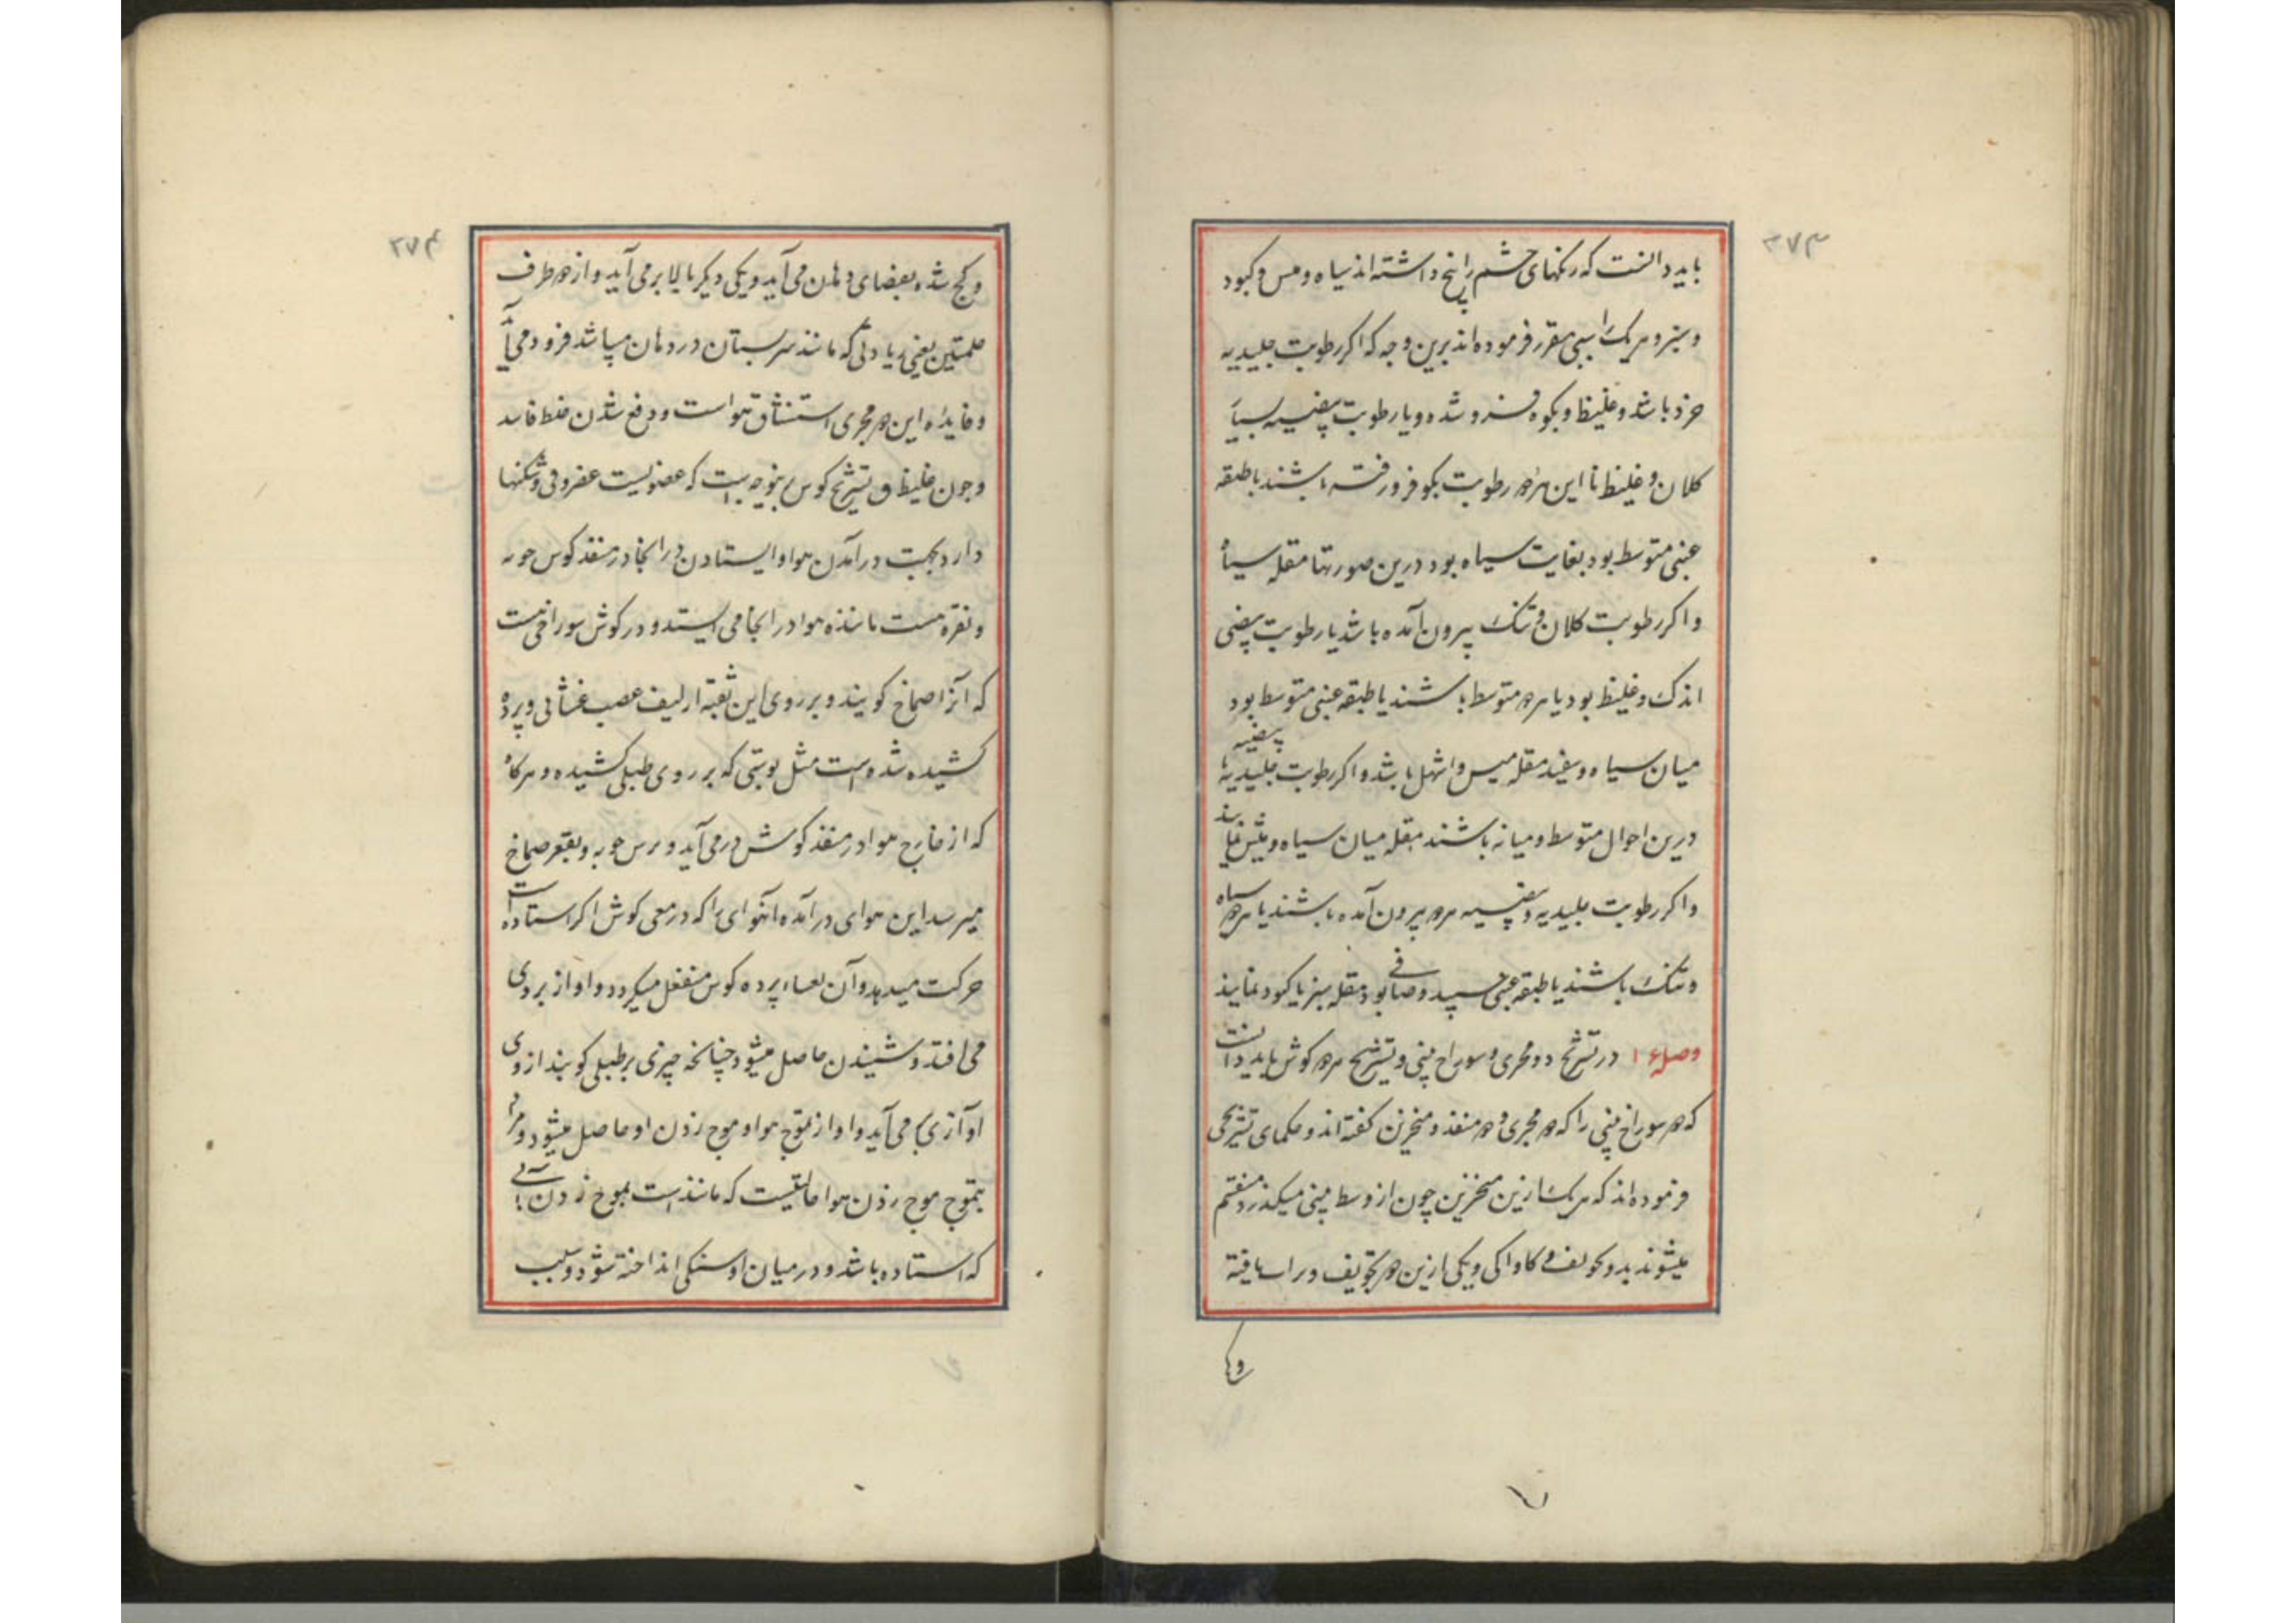 ۳۷۳
باید دانست که رنگهای چشم را پنج داشته اند سیاه و میس و کبود
و سبز و هریک را سببی مقرر فرموده اند برین وجه که اکر رطوبت جلیدیه
خرد باشد و غلیظ و بکوه فرو شده و یا رطوبت بیضیه بسیار
کلان و غلیظ تا این هر دو رطوبت بکو فرو رفته باشند یا طبقه
عنبی متوسط بود بغایت سیاه بود درین صورتها مقله سیاه
و اکر رطوبت کلان و تنک بیرون آمده باشد یا رطوبت بیضی
اندک و غلیظ بود یا هر دو متوسط باشند یا طبقه عنبی متوسط بود
میان سیاه و سفید مقله میس و اشهل باشد و اکر رطوبت جلیدیه بیضیه
درین احوال متوسط و میانه باشند مقله میان سیاه و میش نماید
و اکر رطوبت جلیدیه و بیضیه هر دو بیرون آمده باشند یا هر دو سیاه
و تنک باشند یا طبقه عنبی سپید و صافی بود مقله سبز یا کبود نمایند
وصل ۱۶ در تشریح دو مجری و سوراخ بینی و تشریح هر دو کوش باید دانست
که دو سوراخ بینی را که دو مجری و دو منفذ و منخرین کفته اند و حکمای تشریحی
فرموده اند که هریک ازین منخرین چون از وسط بینی میکذرد منقسم
میشوند بدو تجویف و کاواکی و یکی ازین دو تجویف و راه یافته
۳۷۴
و کج شده بفضای دهان می آید و یکی دیکر بالا بر می آید و از هر دو طرف
حلمتین یعنی زیادتی که مانند سر پستان در دهان میباشد فرود می آید
و فایده این دو مجری استنشاق هوا است و دفع شدن خلط فاسد
و چون غلیظ و تشریح کوش بنوجه است که عضویست غضروفی و شکنها
دارد بجهت در آمدن هوا و ایستادن در انجا در منفذ کوش جوبه
و نقره هست مانند هوا در انجا می ایستد و در کوش سوراخی هست
که آنرا صماخ کویند و بر روی این ثقبه از لیف عصب غشائی و پرده
کشیده شده است مثل پوستی که بر روی طبلی کشیده و هرکاه
که از خارج هوا در منفذ کوش در می آید و برین جوبه و بقعر صماخ
میرسد این هوای در آمده آنهوای را که در معی کوش اکر استاده است
حرکت میدهد و آن پرده کوش منفعل میکردد و اواز بر وی
می افتد و شنیدن حاصل میشود چنانچه چیزی بر طبلی کوبند از وی
اوازی می آید و اواز از تموج هوا و موج زدن او حاصل میشود و مراد
بتموج موج زدن هوا حالتیست که مانند است بموج زدن آبی
که استاده باشد و در میان او سنکی انداخته شود و سبب